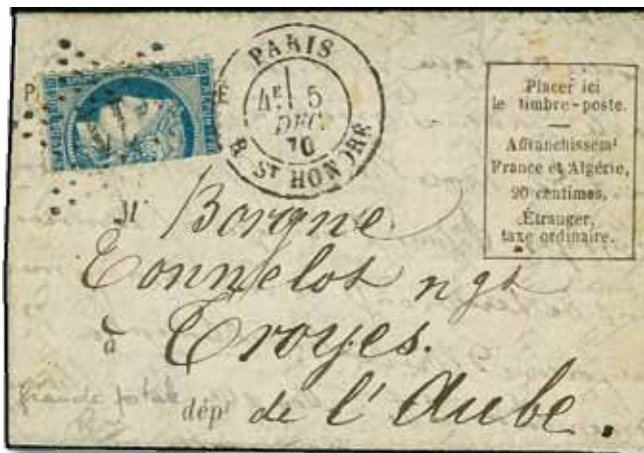 PARIS
4E 5
DEC
70
R. ST HONORÉ
P É
Placer ici
le timbre-poste.
Affranchissemt
France et Algérie,
20 centimes.
Étranger,
taxe ordinaire.
Mr Borgne
Tonnelot ngt
à Troyes.
dépt de l'Aube.